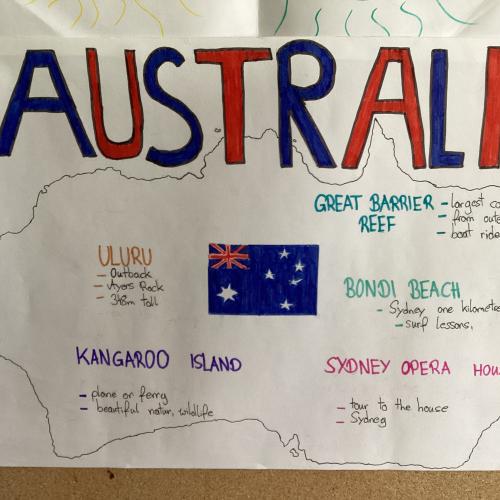 AUSTRALI
GREAT BARRIER
REEF
- largest co
- from oute
- boat ride
ULURU
- Outback
- Ayers Rock
- 348m tall
BONDI BEACH
- Sydney one kilometre
- surf lessons,
KANGAROO ISLAND
- plane or ferry
- beautiful natur, wildlife
SYDNEY OPERA HOU
- tour to the house
- Sydney